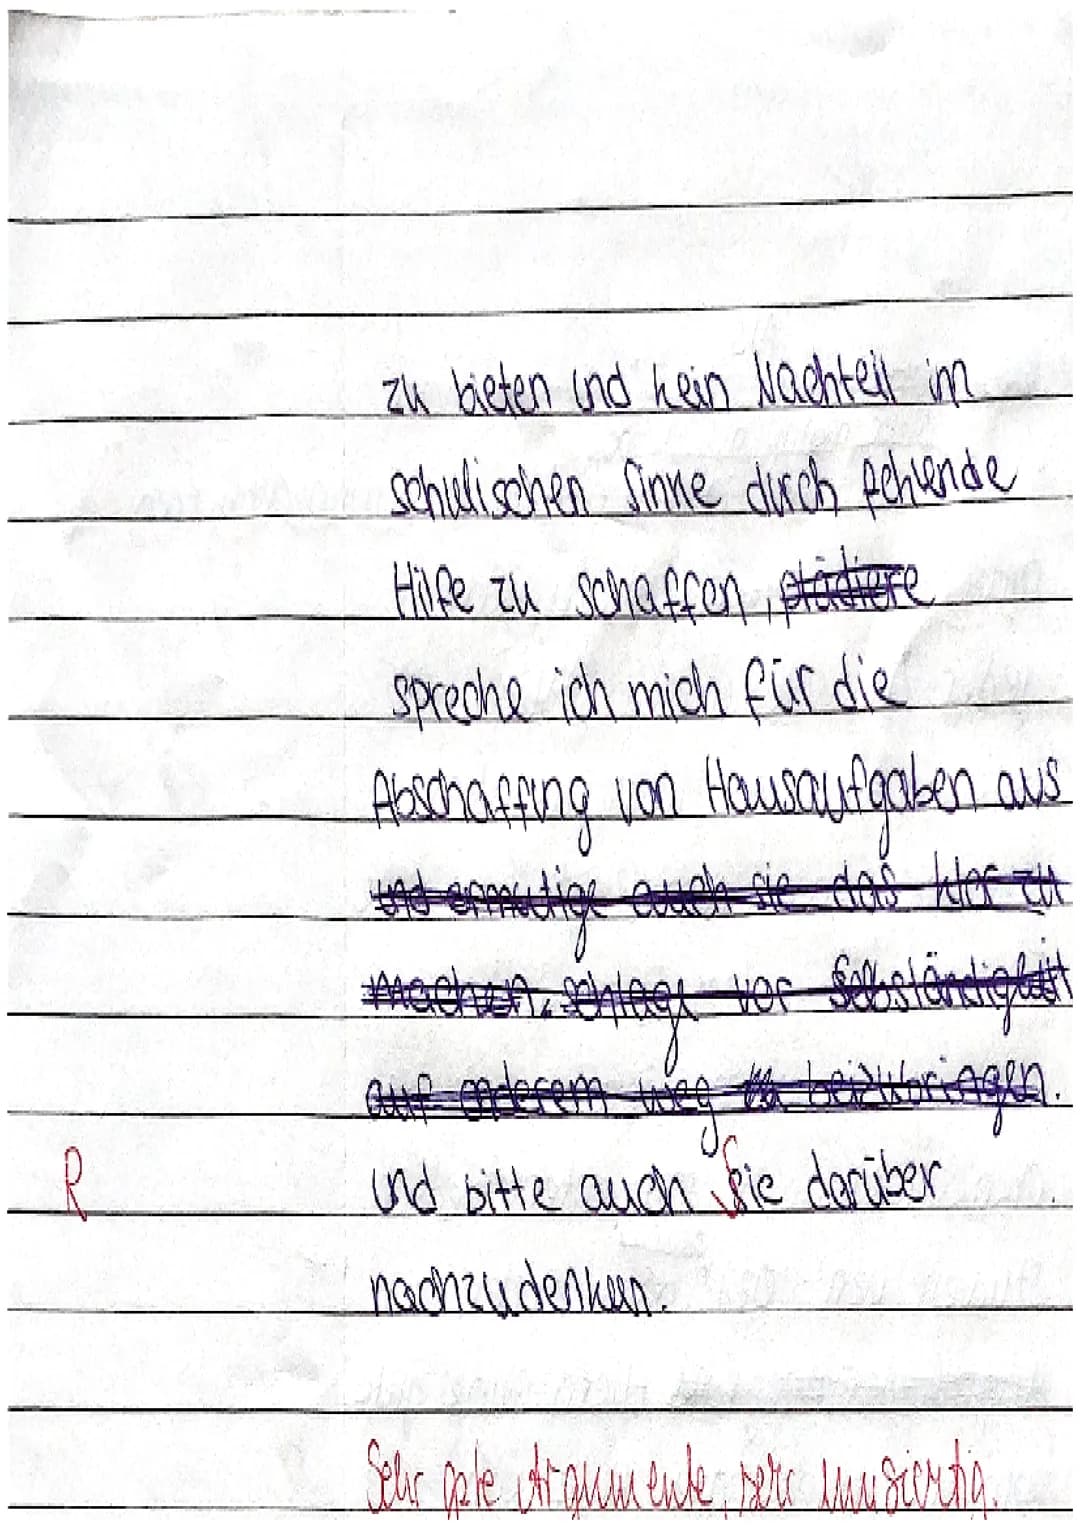 zu bieten und kein Nachteil im
schulischen Sinne durch fehlende
Hilfe zu schaffen, plädiere
spreche ich mich für die
Abschaffung von Hausaufgaben aus
und ermutige auch sie das klar zu
machen. schlage vor Selbständigkeit
auf anderem weg beizubringen.
R und bitte auch Sie darüber
nachzudenken.
Sehr gute Argumente, sehr